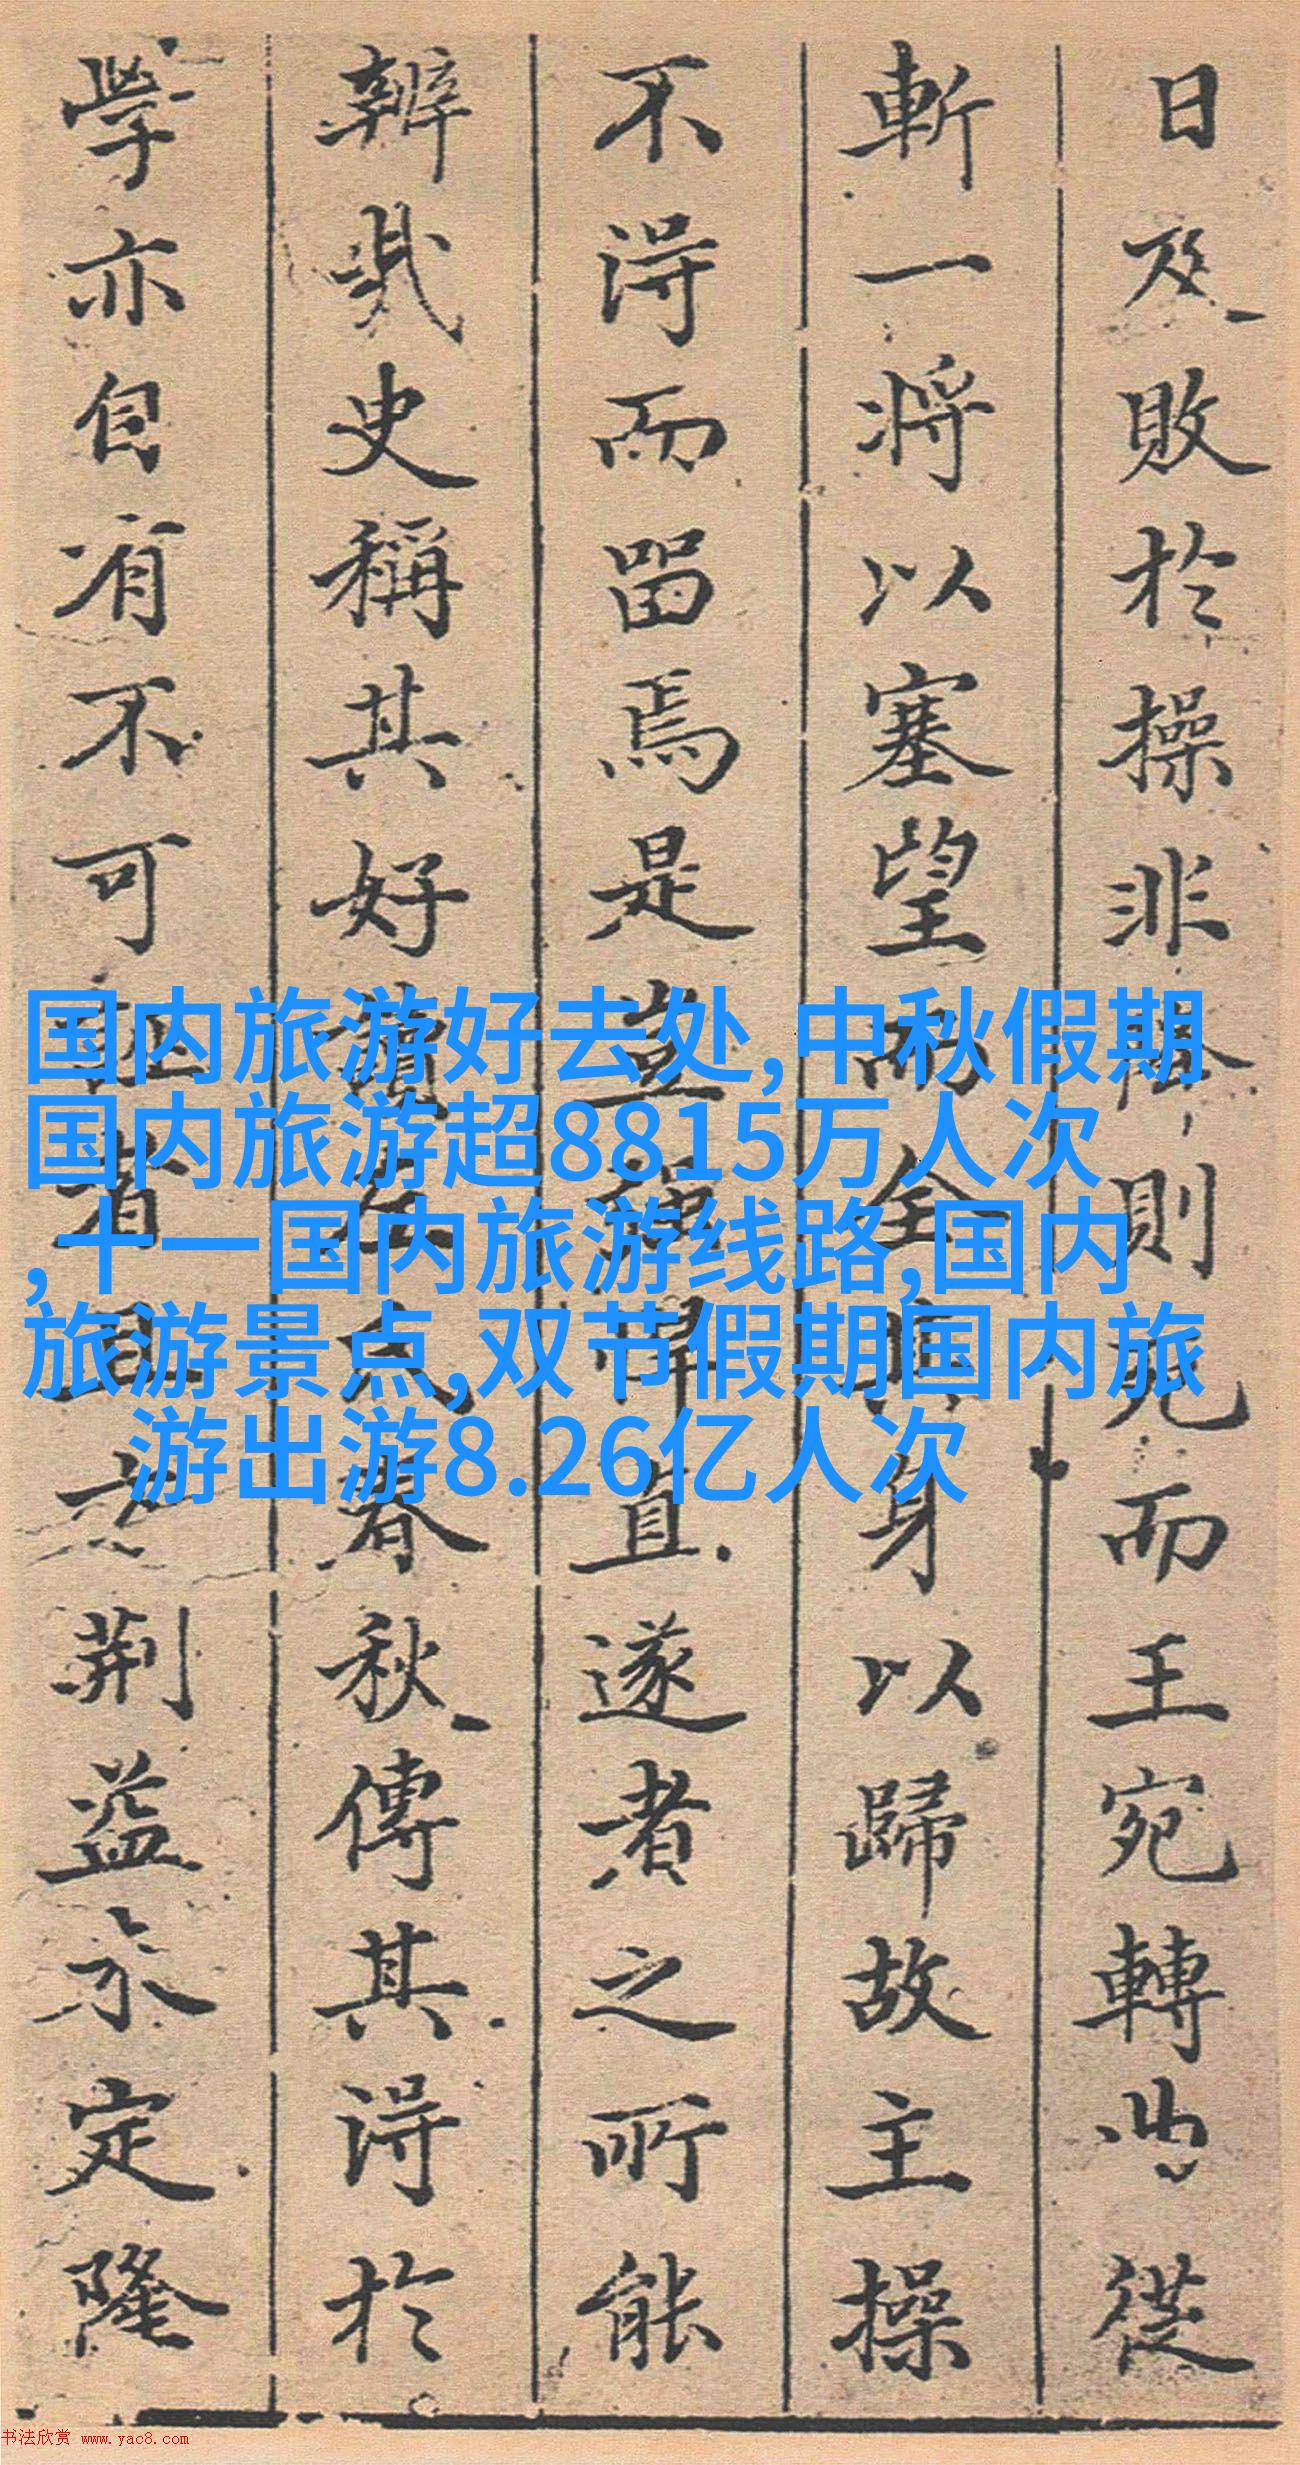 日及敗於操非降則死而王宛轉曲從
斬一將以塞望而全身以歸故主操
不得而留焉是豈強悍直遂者之所能
辨哉史稱其好讀左氏春秋傳其得於
學亦自有不可者且方荊益未定隆
国内旅游好去处,中秋假期
国内旅游超8815万人次
,十一国内旅游线路,国内
旅游景点,双节假期国内旅
游出游8.26亿人次
书法欣赏 www.yac8.com